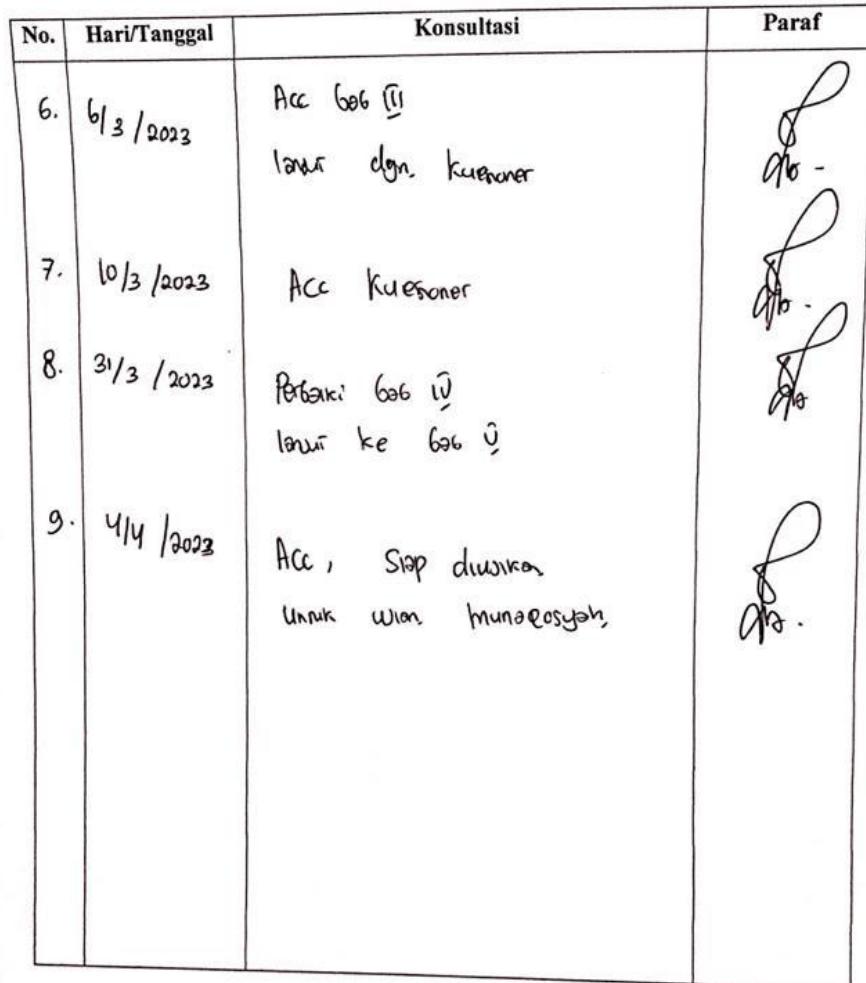 No. Hari/Tanggal Konsultasi Paraf
6. 6/3/2023 Acc bab III
lanjut dgn. kuesioner
7. 10/3/2023 Acc kuesioner
8. 31/3/2023 Perbaiki bab IV
lanjut ke bab V
9. 4/4/2023 Acc, siap diujikan
untuk ujian munaqosyah